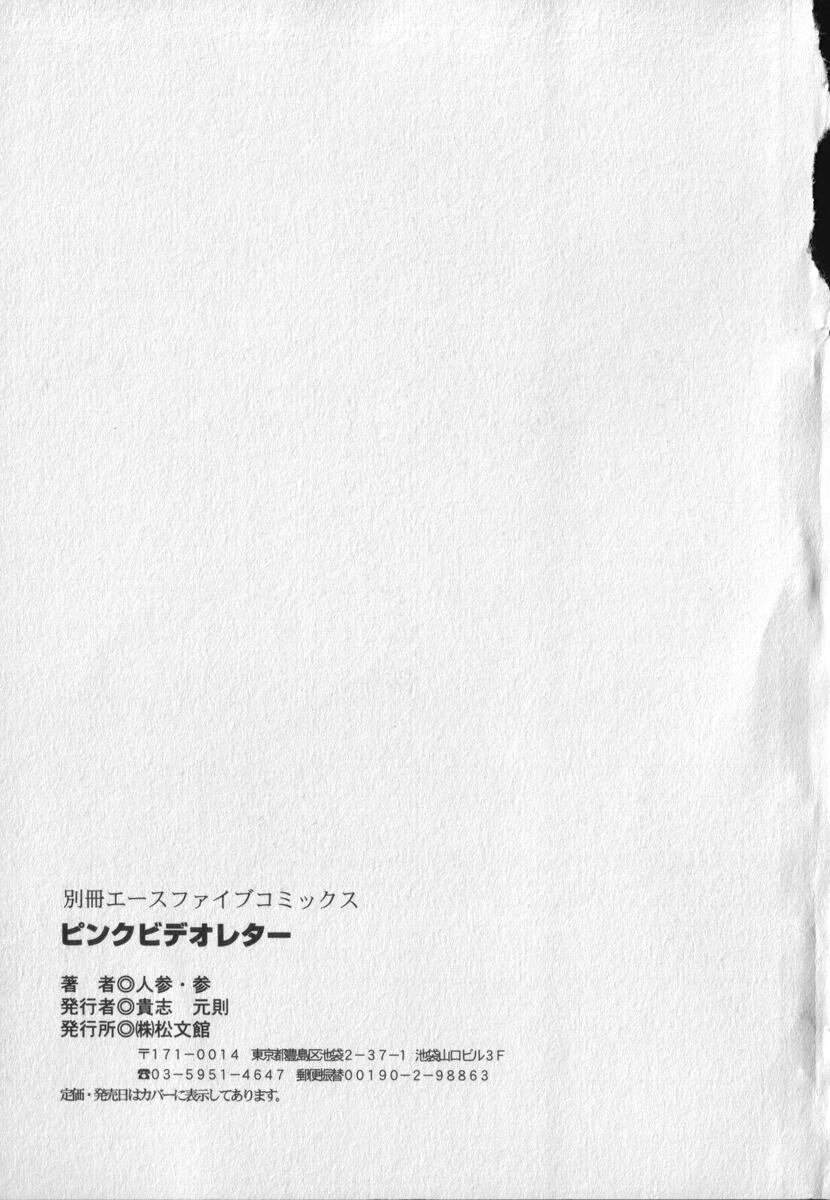 別冊エースファイブコミックス
ピンクビデオレター
著　者◎人参・参
発行者◎貴志　元則
発行所◎㈱松文館
〒171-0014　東京都豊島区池袋2-37-1　池袋山口ビル3F
☎03-5951-4647　郵便振替00190-2-98863
定価・発売日はカバーに表示してあります。